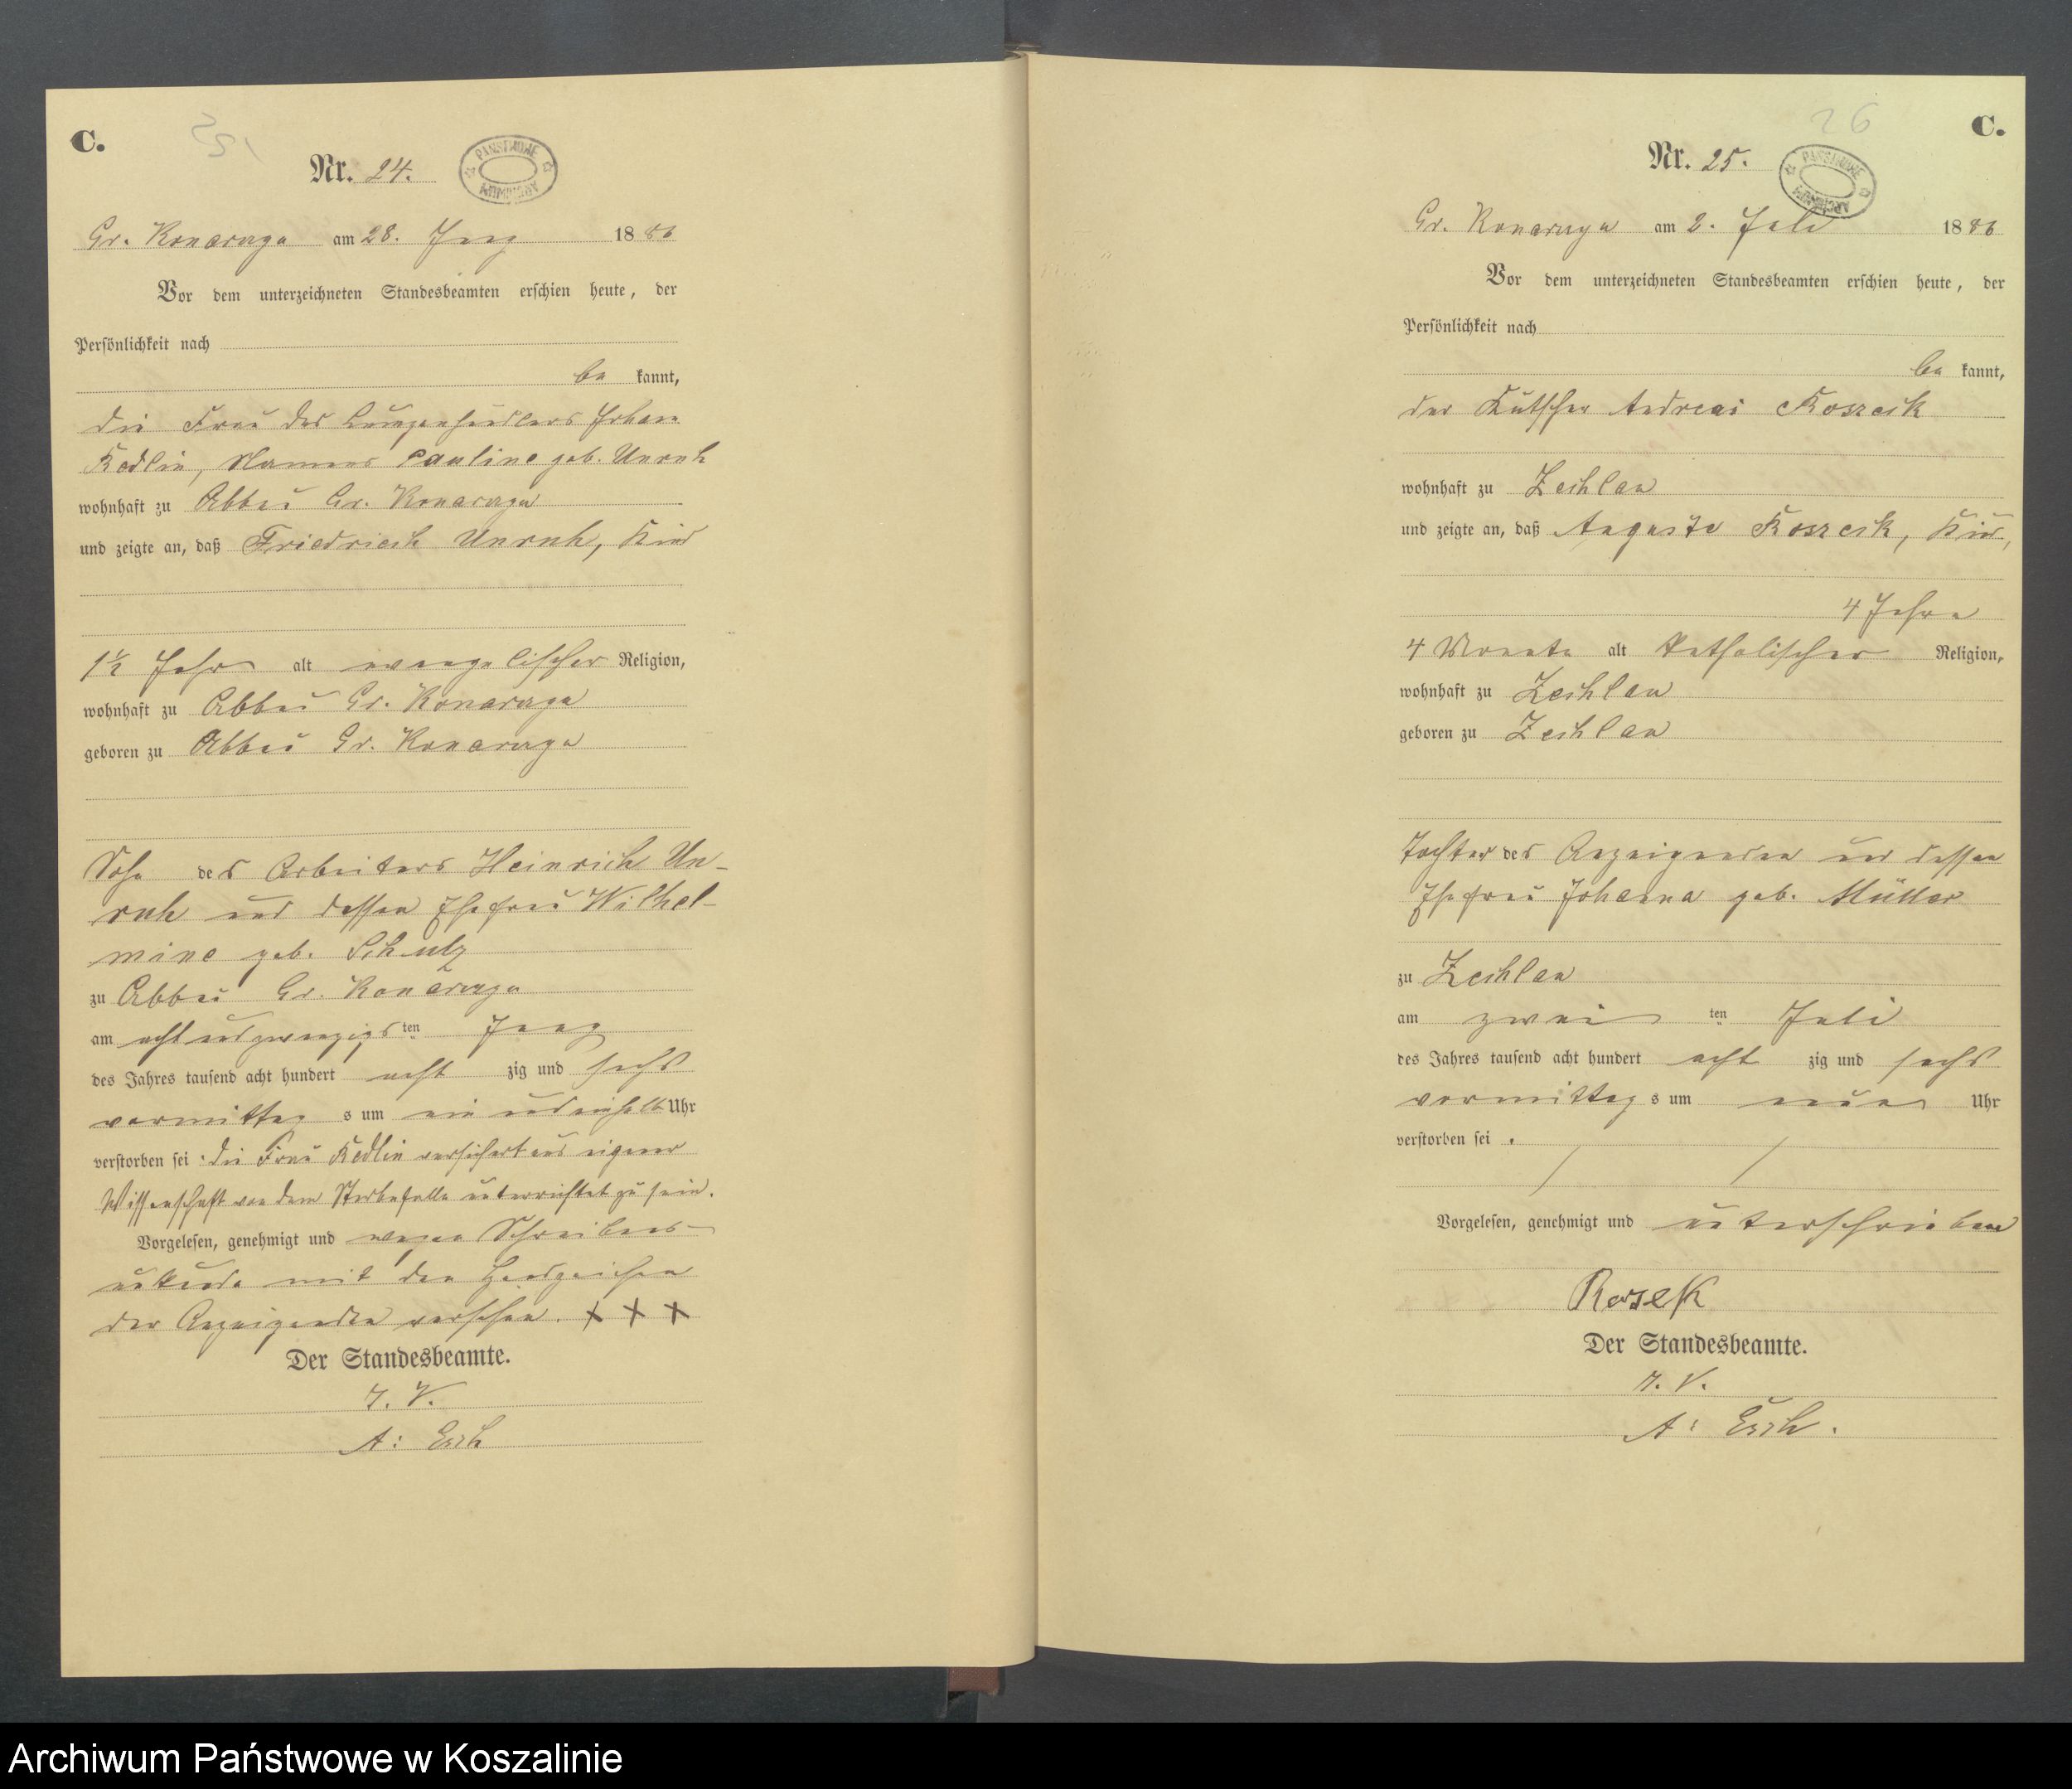 C.
Nr. 24.
PANSTWOWE ARCHIWUM
Gr. Konarzyn am 28. Juny 1886
Vor dem unterzeichneten Standesbeamten erschien heute, der
Persönlichkeit nach
be kannt,
die Frau des Lumpenhändlers Johann
Redlin, Namens Pauline geb. Unruh
wohnhaft zu Abbau Gr. Konarzyn
und zeigte an, daß Friedrich Unruh, Kind
1½ Jahr alt evangelischer Religion,
wohnhaft zu Abbau Gr. Konarzyn
geboren zu Abbau Gr. Konarzyn
Sohn des Arbeiters Heinrich Un-
ruh und dessen Ehefrau Wilhel-
mine geb. Schulz
zu Abbau Gr. Konarzyn
am acht und zwanzigs ten Juny
des Jahres tausend acht hundert acht zig und sechs
vormittag s um ein und einhalb Uhr
verstorben sei. die Frau Redlin versichert aus eigener
Wissenschaft von dem Sterbefalle unterrichtet zu sein.
Vorgelesen, genehmigt und wegen Schreibens-
unkunde mit den Handzeichen
der Anzeigenden versehen. + + +
Der Standesbeamte.
I. V.
A: Esch
26
C.
Nr. 25.
PANSTWOWE ARCHIWUM
Gr. Konarzyn am 2. Juli 1886
Vor dem unterzeichneten Standesbeamten erschien heute, der
Persönlichkeit nach
be kannt,
der Kutscher Andreas
wohnhaft zu Zechlau
und zeigte an, daß Auguste Kind,
4 Jahre
4 Monate alt katholischer Religion,
wohnhaft zu Zechlau
geboren zu Zechlau
Tochter des Anzeigenden und dessen
Ehefrau Johanna geb. Müller
zu Zechlau
am zwei ten Juli
des Jahres tausend acht hundert acht zig und sechs
vormittag s um neun Uhr
verstorben sei.
Vorgelesen, genehmigt und unterschrieben
Der Standesbeamte.
I. V.
A: Esch.
Archiwum Państwowe w Koszalinie